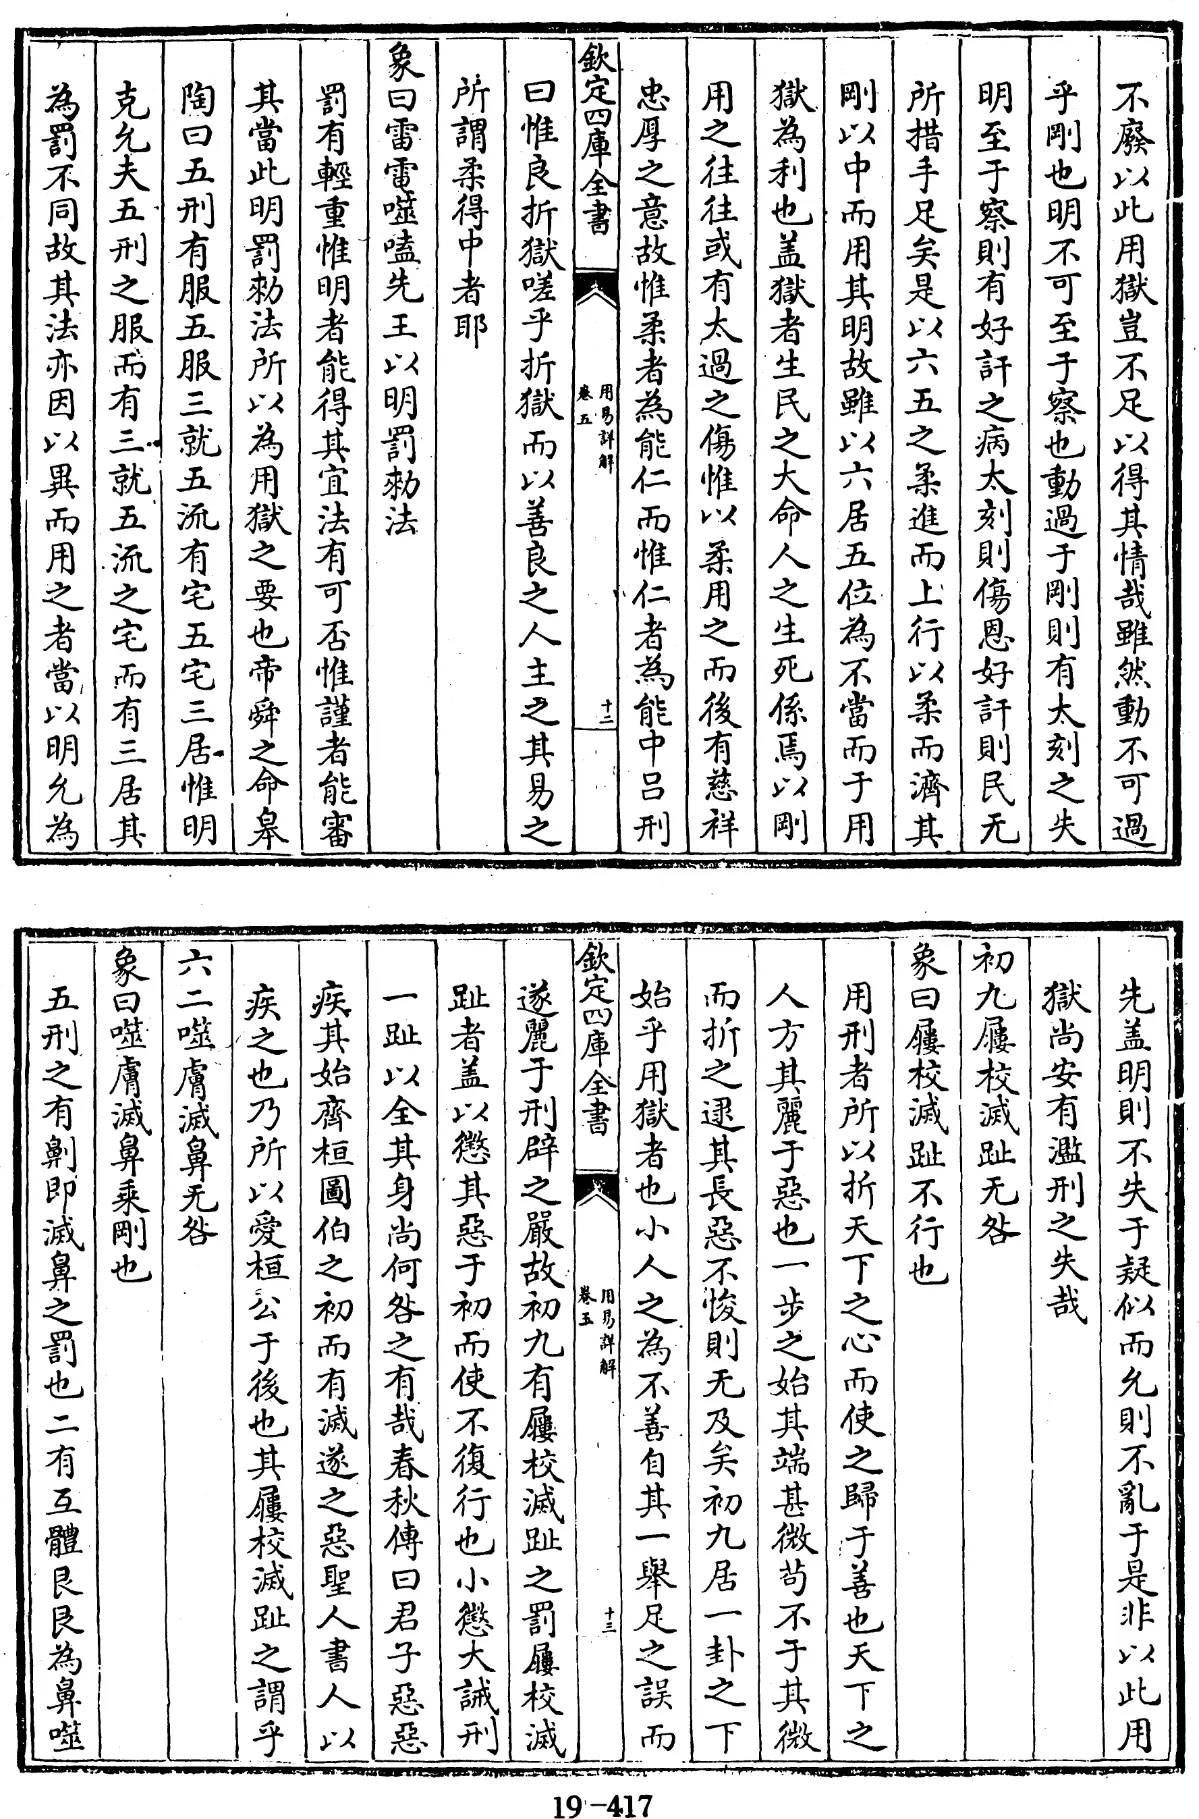 不廢以此用獄豈不足以得其情哉雖然動不可過
乎剛也明不可至于察也動過于剛則有太刻之失
明至于察則有好訐之病太刻則傷恩好訐則民无
所措手足矣是以六五之柔進而上行以柔而濟其
剛以中而用其明故雖以六居五位為不當而于用
獄為利也盖獄者生民之大命人之生死係焉以剛
用之往往或有太過之傷惟以柔用之而後有慈祥
忠厚之意故惟柔者為能仁而惟仁者為能中呂刑
欽定四庫全書
用易詳解
卷五
十二
曰惟良折獄嗟乎折獄而以善良之人主之其易之
所謂柔得中者耶
象曰雷電噬嗑先王以明罰勑法
罰有輕重惟明者能得其宜法有可否惟謹者能審
其當此明罰勑法所以為用獄之要也帝舜之命皋
陶曰五刑有服五服三就五流有宅五宅三居惟明
克允夫五刑之服而有三就五流之宅而有三居其
為罰不同故其法亦因以異而用之者當以明允為
先盖明則不失于疑似而允則不亂于是非以此用
獄尚安有濫刑之失哉
初九屨校滅趾无咎
象曰屨校滅趾不行也
用刑者所以折天下之心而使之歸于善也天下之
人方其麗于惡也一步之始其端甚微苟不于其微
而折之逮其長惡不悛則无及矣初九居一卦之下
始乎用獄者也小人之為不善自其一舉足之誤而
欽定四庫全書
用易詳解
卷五
十三
遂麗于刑辟之嚴故初九有屨校滅趾之罰屨校滅
趾者盖以懲其惡于初而使不復行也小懲大誡刑
一趾以全其身尚何咎之有哉春秋傳曰君子惡惡
疾其始齊桓圖伯之初而有滅遂之惡聖人書人以
疾之也乃所以愛桓公于後也其屨校滅趾之謂乎
六二噬膚滅鼻无咎
象曰噬膚滅鼻乘剛也
五刑之有劓即滅鼻之罰也二有互體艮艮為鼻噬
19-417